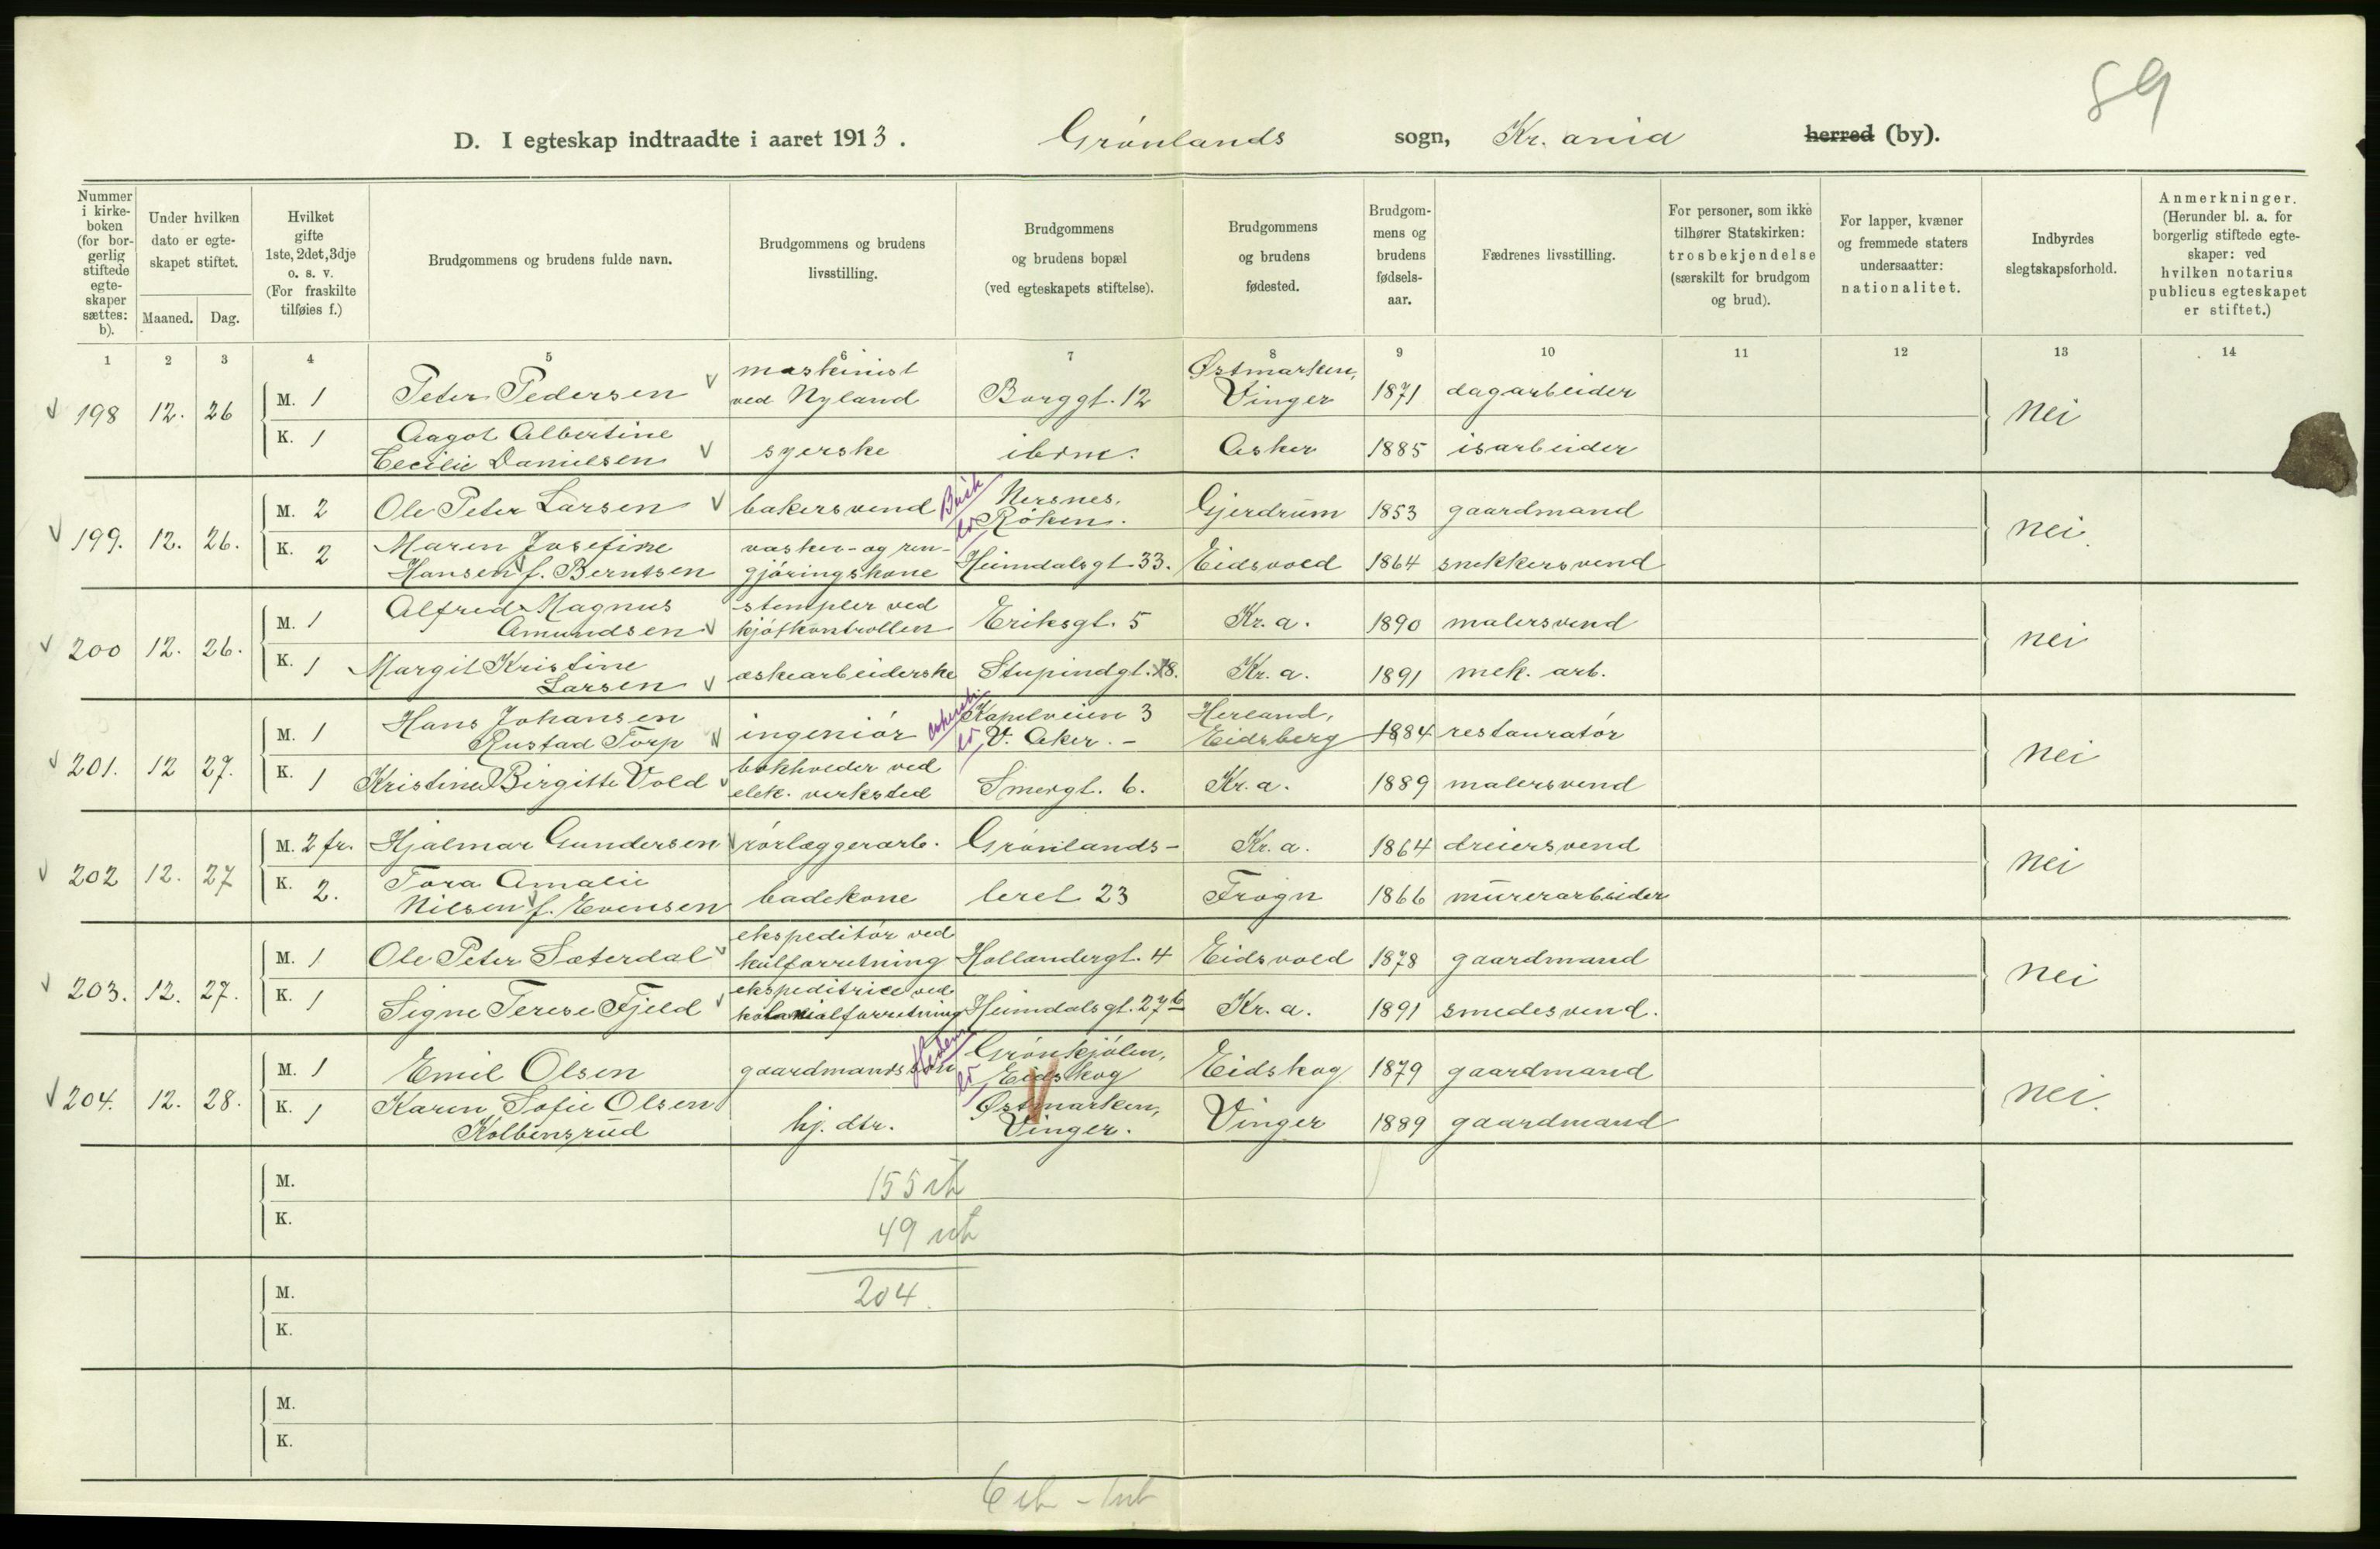 89
D. I egteskap indtraadte i aaret 1913. Grønlands sogn, Kr.ania herred (by).
Nummer i kirke-boken (for bor-gerlig stiftede egte-skaper sættes: b).
Under hvilken dato er egte-skapet stiftet.
Maaned. Dag.
Hvilket gifte 1ste, 2det, 3dje o. s. v. (For fraskilte tilføies f.)
Brudgommens og brudens fulde navn.
Brudgommens og brudens livsstilling.
Brudgommens og brudens bopæl (ved egteskapets stiftelse).
Brudgommens og brudens fødested.
Brudgom-mens og brudens fødsels-aar.
Fædrenes livsstilling.
For personer, som ikke tilhører Statskirken: trosbekjendelse (særskilt for brudgom og brud).
For lapper, kvæner og fremmede staters undersaatter: nationalitet.
Indbyrdes slegtskapsforhold.
Anmerkninger. (Herunder bl. a. for borgerlig stiftede egte-skaper: ved hvilken notarius publicus egteskapet er stiftet.)
1 2 3 4 5 6 7 8 9 10 11 12 13 14
198 12. 26 M. 1 Peter Pedersen maskinist ved Nyland Borggt. 12 Østmarken, Vinger 1871 dagarbeider nei
K. 1 Aagot Albertine Cecilie Danielsen syerske ibdm. Asker 1885 isarbeider
199. 12. 26. M. 2 Ole Peter Larsen bakersvend Nersnes, Røken. Gjerdrum 1853 gaardmand nei.
K. 2 Maren Josefine Hansen f. Berntsen vasker- og ren-gjøringskone Heimdalsgt. 33. Eidsvold 1864 snekkersvend
200 12. 26. M. 1 Alfred Magnus Amundsen stempler ved kjøtkontrollen Eriksgt. 5 Kr.a. 1890 malersvend nei
K. 1 Margit Kristine Larsen æskearbeiderske Stupindgt. 8. Kr.a. 1891 mek. arb.
201. 12 27. M. 1 Hans Johansen Rustad Torp ingeniør Kapelveien 3 V. Aker. - Herland, Eidsberg 1884 restauratør nei
K. 1 Kristine Birgitte Vold bokholder ved elek. verksted Smergt. 6. Kr.a. 1889 malersvend
202 12. 27 M. 2 fr. Hjalmar Gundersen rørlæggerarb. Grønlands- Kr.a. 1864 dreiersvend nei
K. 2. Tora Amalie Nilsen f. Evensen badekone leret 23 Frogn 1866 murerarbeider
203. 12. 27. M. 1 Ole Peter Sæterdal ekspeditør ved kulforretning Hollandergt. 4 Eidsvold 1878 gaardmand nei
K. 1 Signe Terese Fjeld ekspeditrice ved kolonialforretning Heimdalsgt. 27b Kr.a. 1891 smedesvend.
204. 12. 28. M. 1 Emil Olsen gaardmandssøn Grønkjølen, Eidskog Eidskog 1879 gaardmand nei.
K. 1 Karen Sofie Olsen Kolbensrud hj. dtr. Østmarken, Vinger. Vinger 1889 gaardmand
M. 155
K. 49
M. 204.
K.
M.
K.